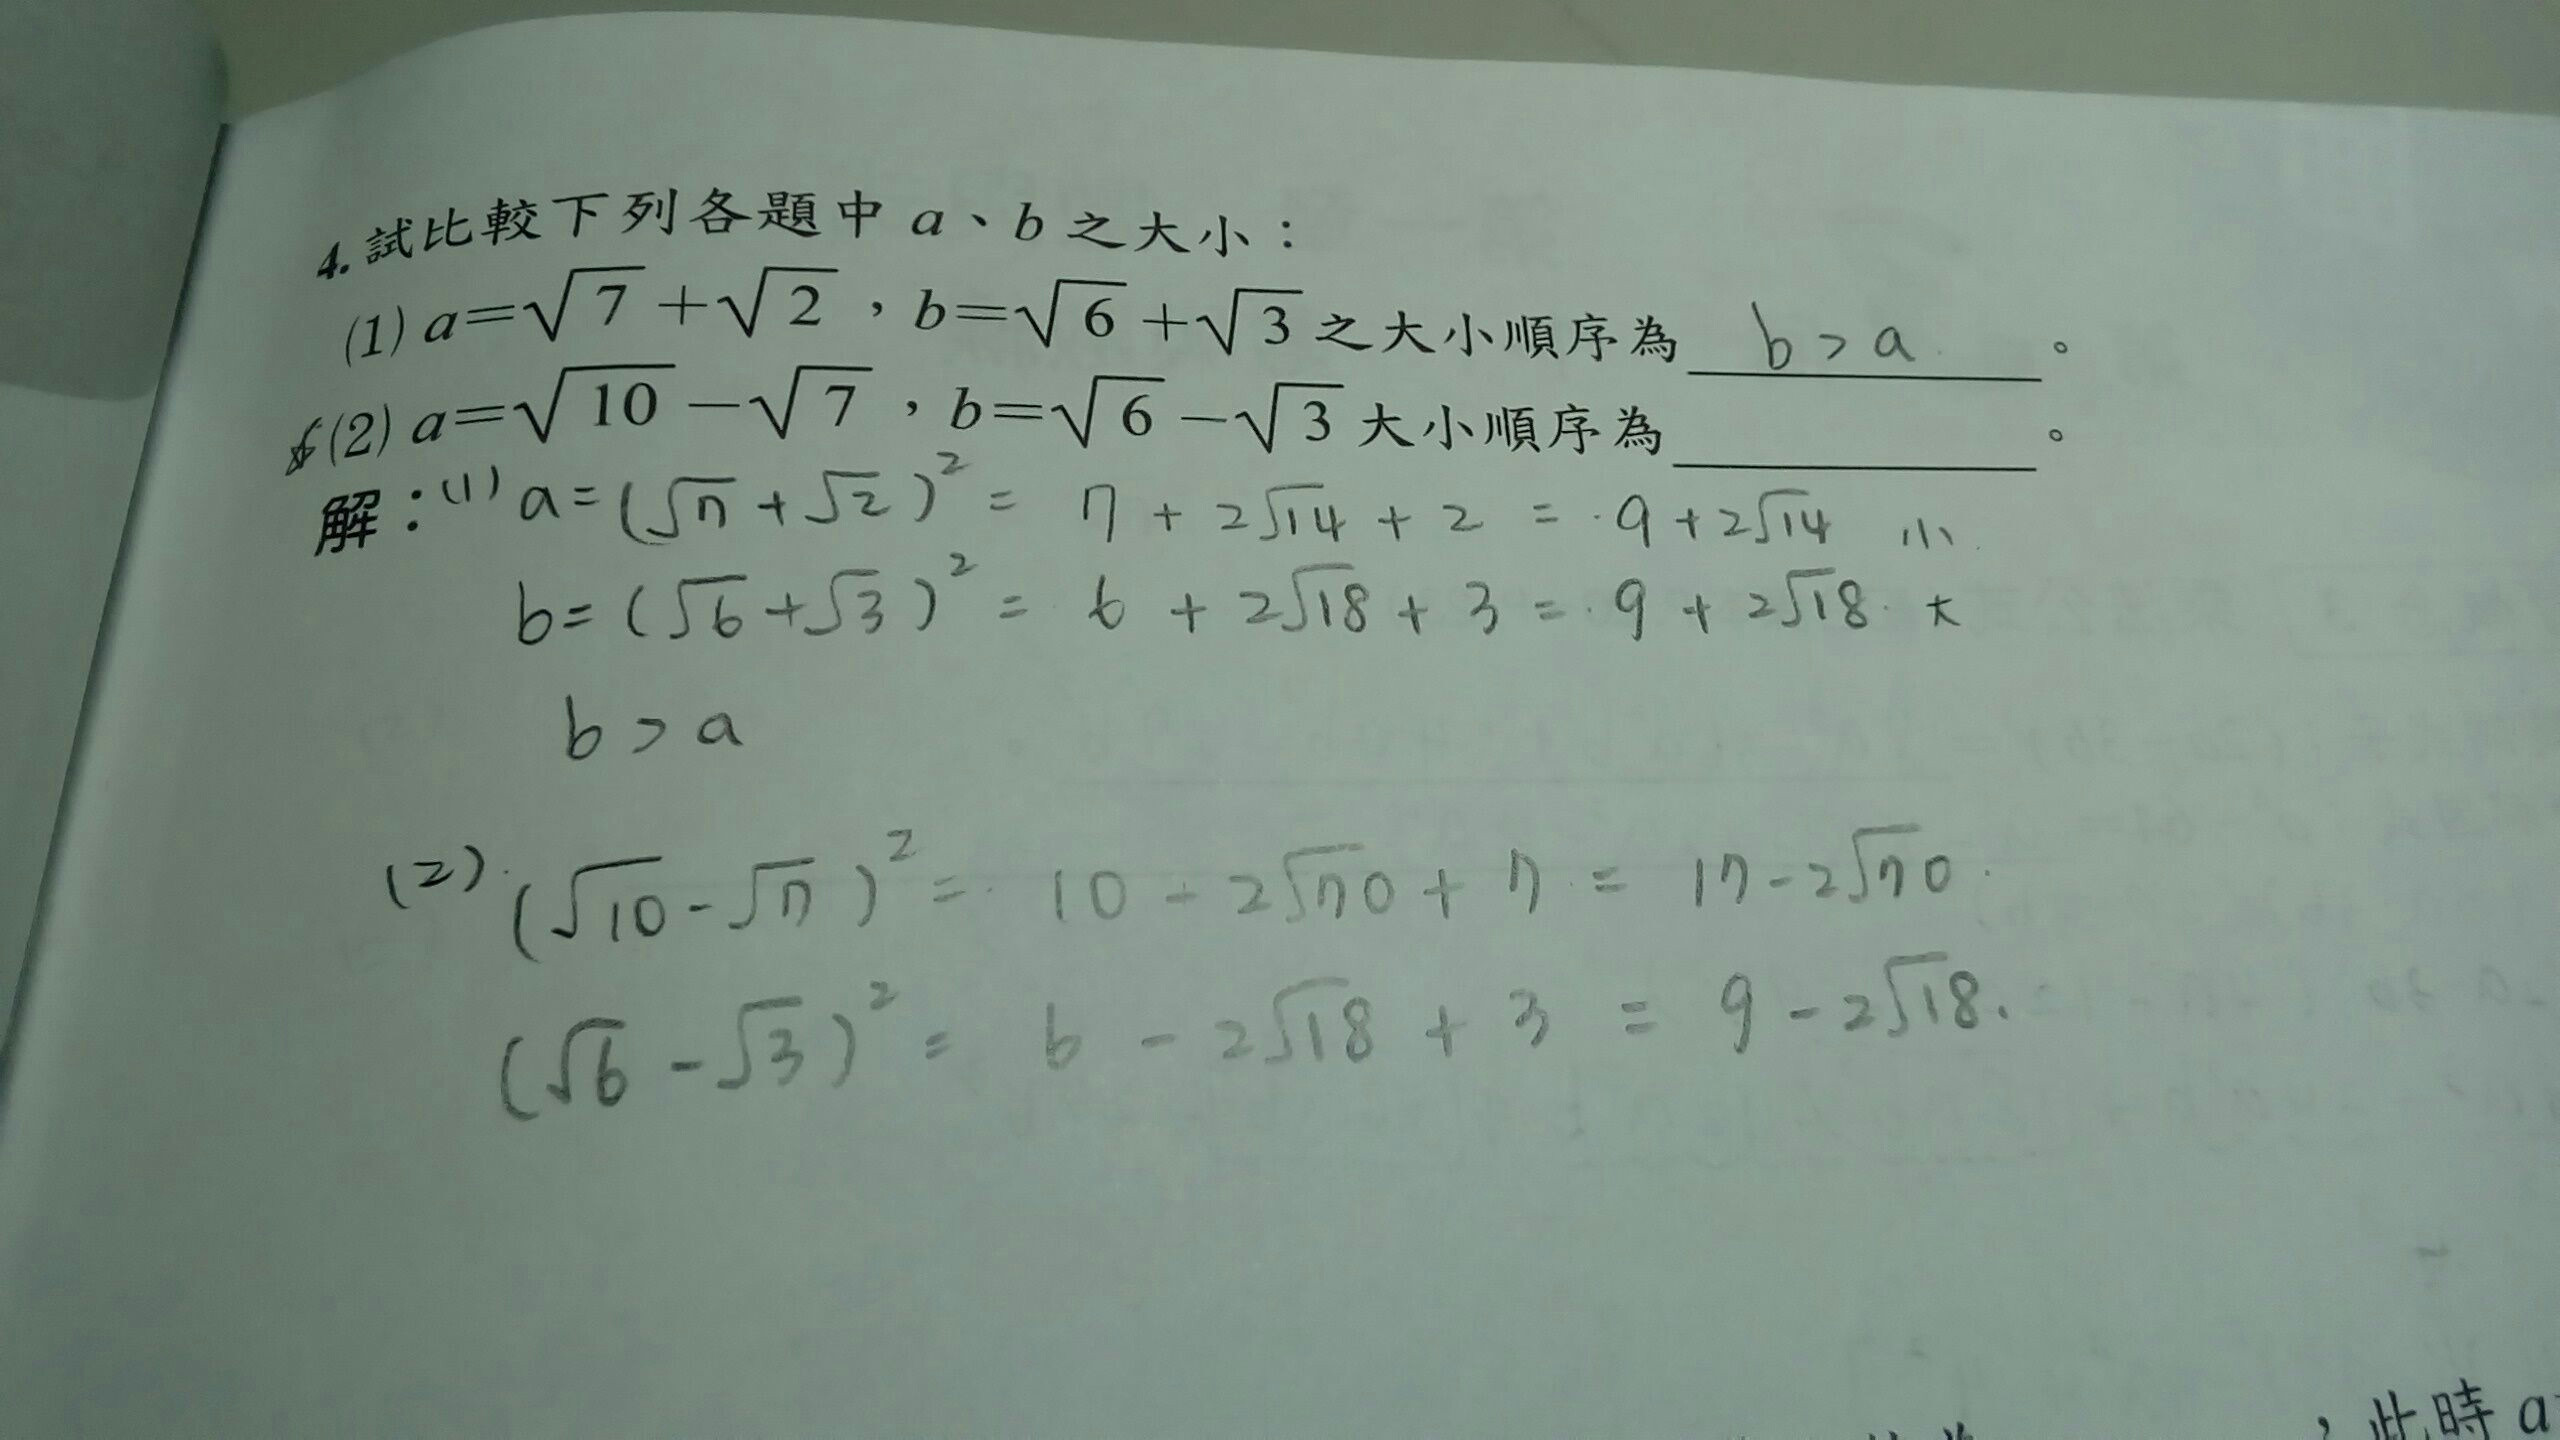 4. 試比較下列各題中 a、b 之大小：
(1) a=√7+√2，b=√6+√3之大小順序為 b > a 。
(2) a=√10−√7，b=√6−√3大小順序為＿＿＿。
解：(1) a = (√7 + √2)² = 7 + 2√14 + 2 = 9 + 2√14 小
b = (√6 + √3)² = 6 + 2√18 + 3 = 9 + 2√18 大
b > a
(2) (√10 - √7)² = 10 - 2√70 + 7 = 17 - 2√70
(√6 - √3)² = 6 - 2√18 + 3 = 9 - 2√18
，此時 a